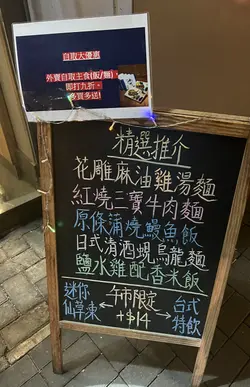 自取大優惠
外賣自取主食(飯/麵),
即打九折,
多買多送!
精選推介
花雕麻油雞湯麵
紅燒三寶牛肉麵
原條蒲燒鰻魚飯
日式清酒蜆烏龍麵
鹽水雞配香米飯
迷你 午市限定 台式
仙草凍 +$14 特飲